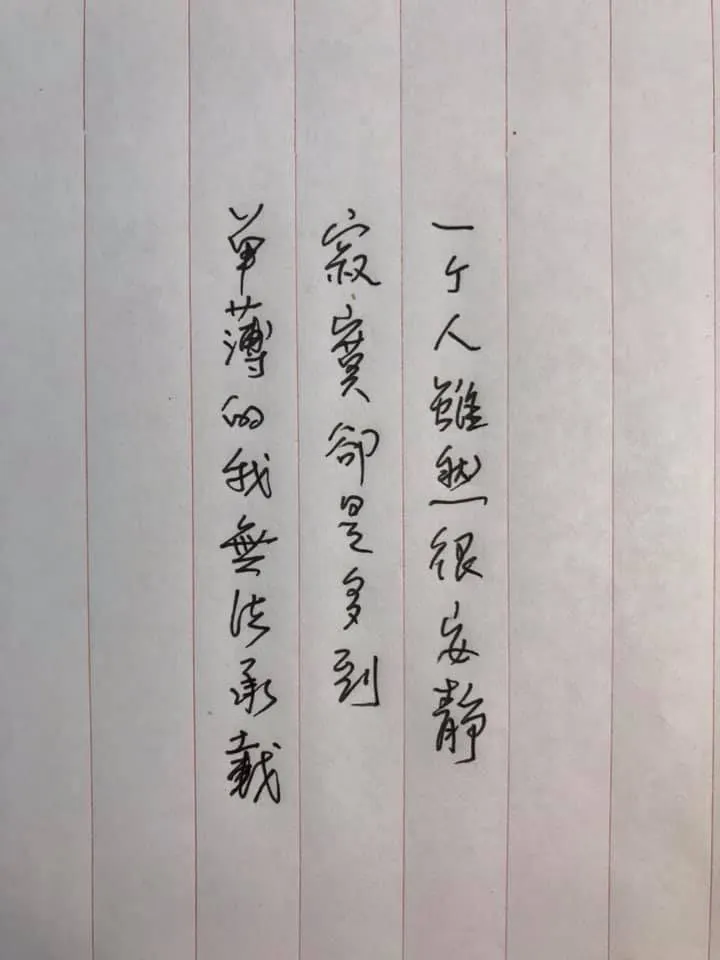 一个人雖然很安靜
寂寞卻是多到
单薄的我無法承載